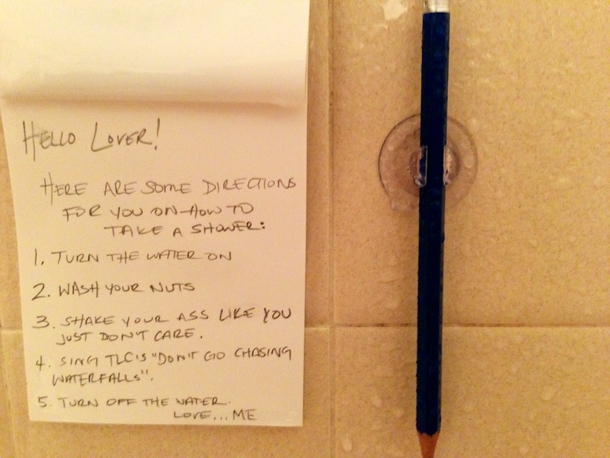 HELLO LOVER!
HERE ARE SOME DIRECTIONS
FOR YOU ON HOW TO
TAKE A SHOWER:
1. TURN THE WATER ON
2. WASH YOUR NUTS
3. SHAKE YOUR ASS LIKE YOU
JUST DON'T CARE.
4. SING TLC'S "DON'T GO CHASING
WATERFALLS".
5. TURN OFF THE WATER.
LOVE... ME